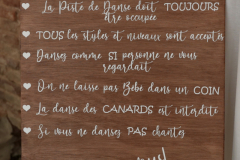 La Piste de Danse doit TOUJOURS
être occupée
TOUS les styles et niveaux sont acceptés
Dansez comme SI personne ne vous
regardait
On ne laisse pas Bébé dans un COIN
La danse des CANARDS est interdite
Si vous ne dansez PAS chantez